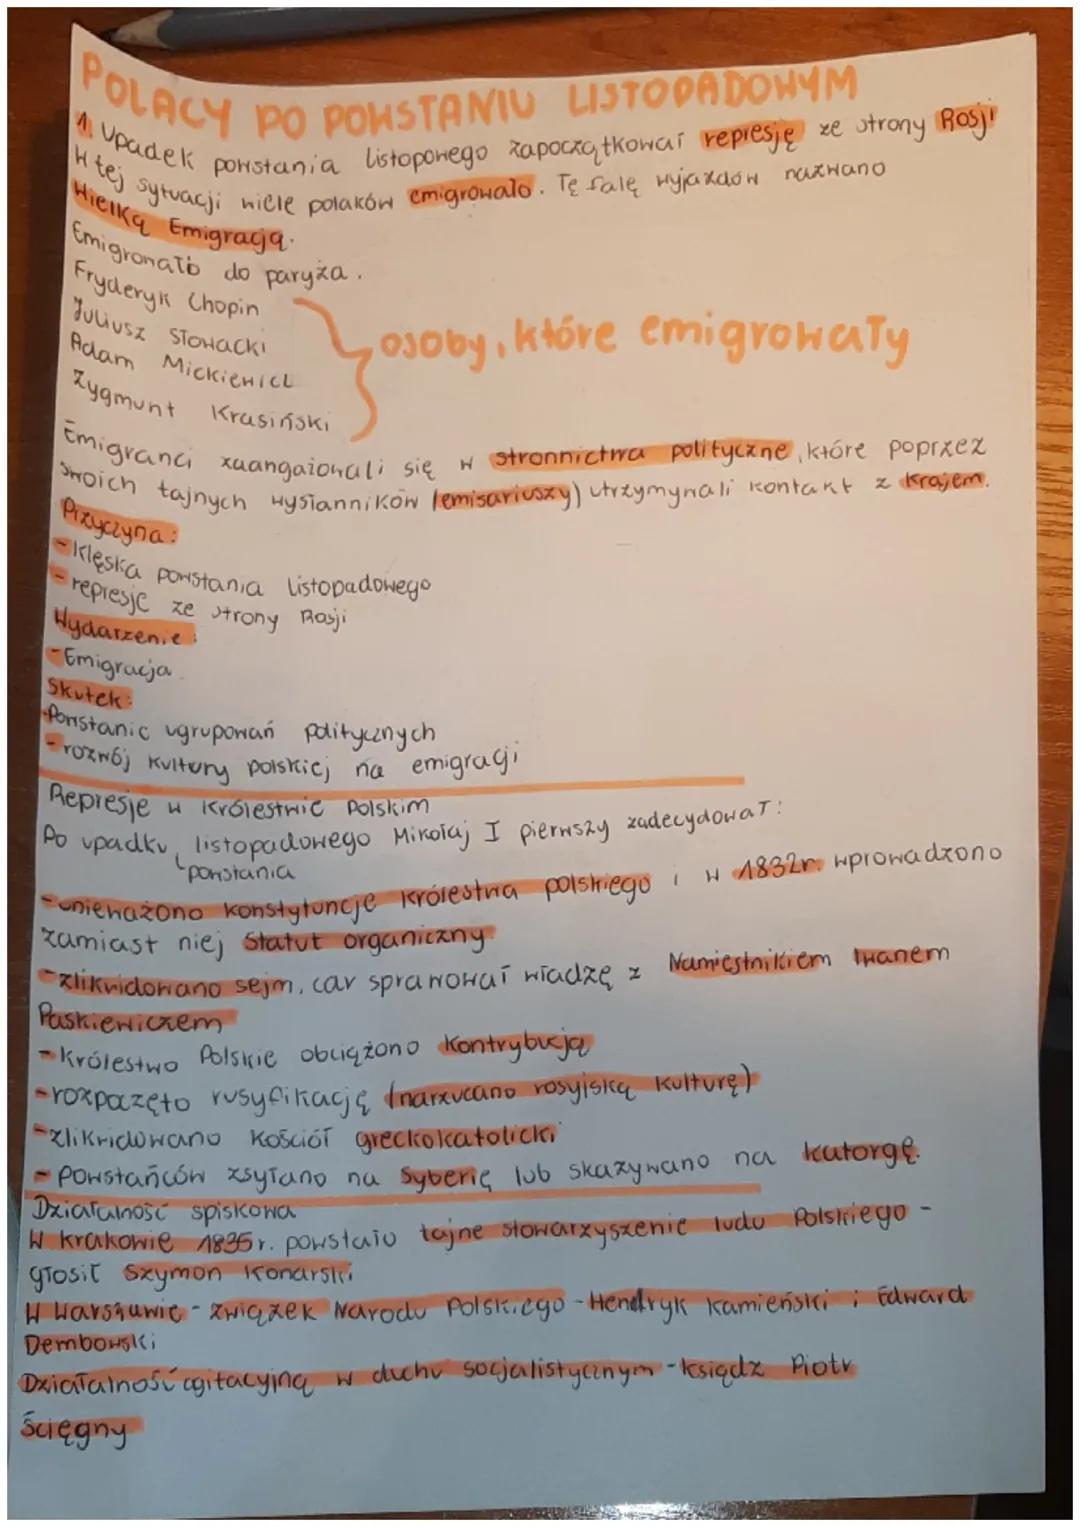 POLACY PO POWSTANIU LISTOPADOWYM
1. Upadek powstania listopowego zapoczątkował represję ze strony Rosji
W tej sytuacji wiele polaków emigrowało. Tę falę wyjazdów nazwano
Wielką Emigracją.
Emigrowało do paryża.
Fryderyk Chopin
Juliusz Słowacki
Adam Mickiewicz
Zygmunt Krasiński
osoby, które emigrowały
Emigranci zaangażowali się w stronnictwa polityczne, które poprzez
swoich tajnych wysłanników (emisariuszy) utrzymywali kontakt z krajem.
Przyczyna:
- Klęska powstania listopadowego
- represje ze strony Rosji
Wydarzenie:
- Emigracja.
Skutek:
- Powstanie ugrupowań politycznych
- rozwój kultury polskiej na emigracji
Represje w Królestwie Polskim
Po upadku listopadowego Mikołaj I pierwszy zadecydował:
powstania
- unieważono konstytuncje Królestwa polskiego i w 1832r. wprowadzono
zamiast niej Statut organiczny.
- zlikwidowano sejm, car sprawował władzę z Namięstnikiem Iwanem
Paskiewiczem
- Królestwo Polskie obciążono kontrybucją
- rozpoczęto rusyfikację (narzucano rosyjską kulturę)
- zlikwidowano Kościół greckokatolicki
- Powstańców zsyłano na Syberię lub skazywano na katorgę.
Działalność spiskowa
W krakowie 1835r. powstało tajne stowarzyszenie ludu Polskiego -
głosił Szymon Konarski
W Warszawie - związek Narodu Polskiego - Hendryk Kamieński i Edward
Dembowski
Działalność agitacyjną w duchu socjalistycznym - ksiądz Piotr
Ścięgny